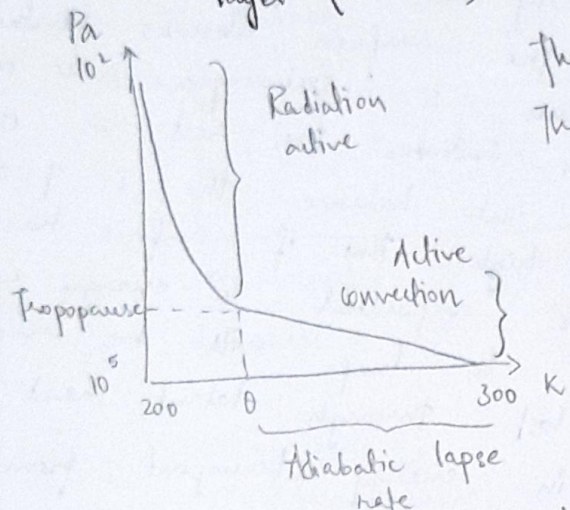 Pa
10²
Radiation
active
Active
convection
Tropopause
10⁵
200
θ
300
K
Adiabatic lapse
rate